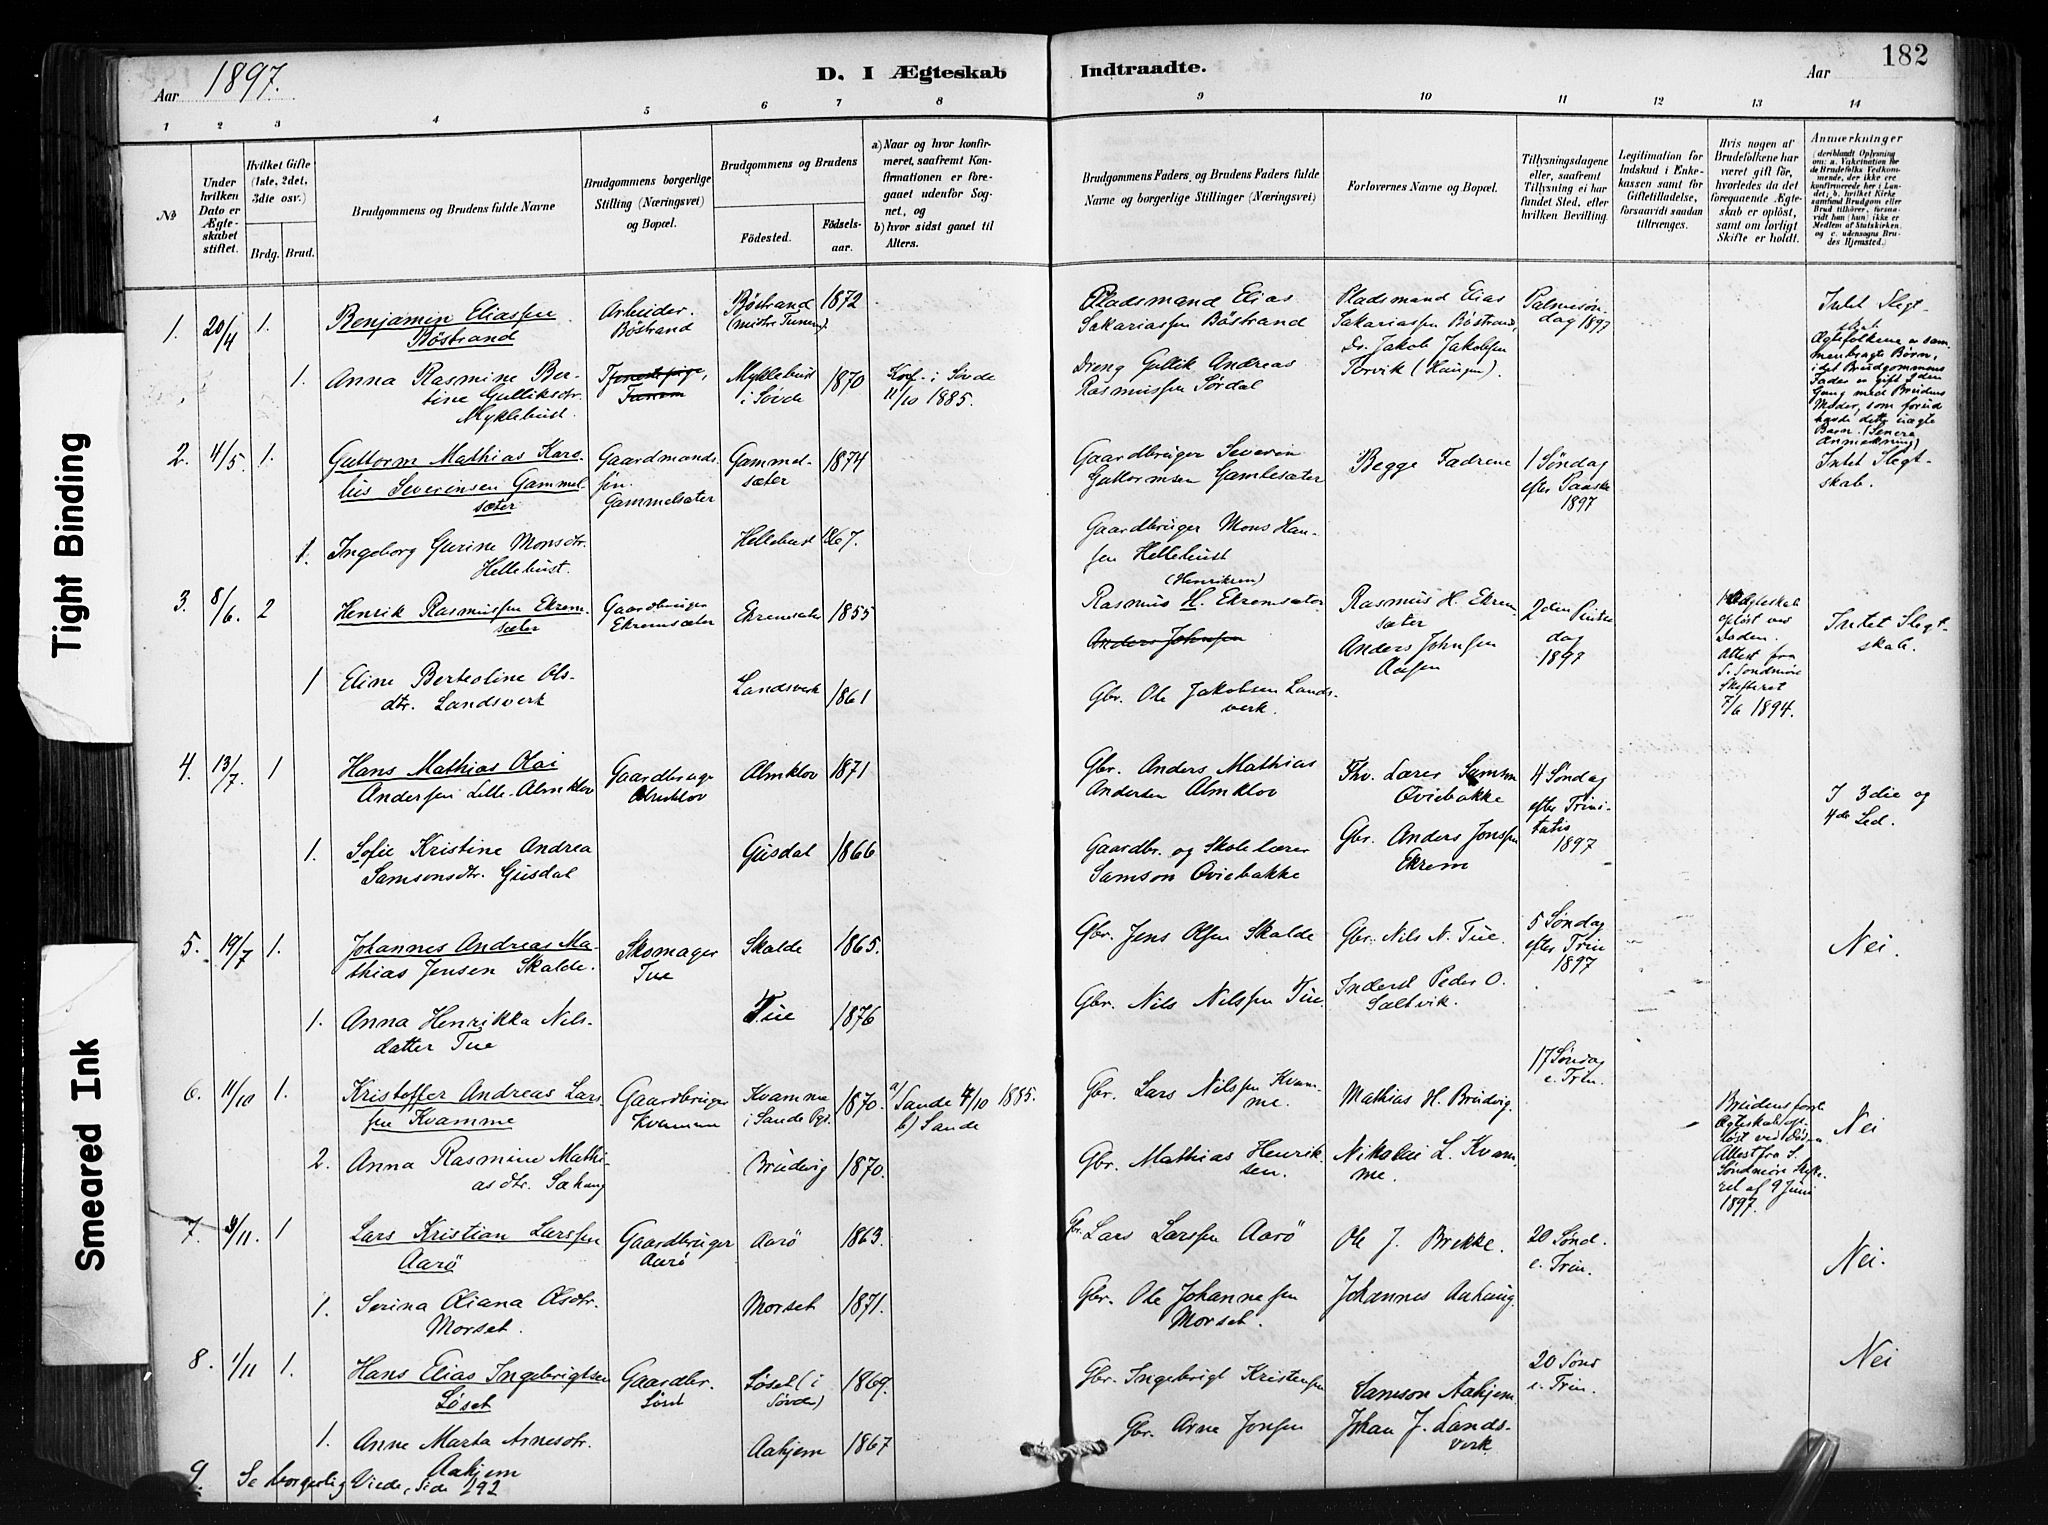 182
Aar 1897.
D. I Ægteskab Indtraadte.
Aar
1 2 3 4 5 6 7 8 9 10 11 12 13 14
№
Under hvilken Dato er Ægteskabet stiftet.
Hvilket Gifte (1ste, 2det, 3die osv.)
Brdg. Brud.
Brudgommens og Brudens fulde Navne
Brudgommens borgerlige Stilling (Næringsvei) og Bopæl.
Brudgommens og Brudens
Fødested.
Fødselsaar.
a) Naar og hvor konfirmeret, saafremt Konfirmationen er foregaaet udenfor Sognet, og
b) hvor sidst gaaet til Alters.
Brudgommens Faders, og Brudens Faders fulde Navne og borgerlige Stillinger (Næringsvei)
Forlovernes Navne og Bopæl.
Tillysningsdagene eller, saafremt Tillysning ei har fundet Sted, efter hvilken Bevilling.
Legitimation for Indskud i Enkekassen samt for Giftetilladelse, forsaavidt saadan tiltrænges.
Hvis nogen af Brudefolkene har været gift før, hvorledes da det foregaaende Ægteskab er opløst, samt om lovligt Skifte er holdt.
Anmærkninger
1. 20/4 1.
Benjamin Eliassen
Böstrand
Arbeider
Böstrand
Böstrand
1872
Pladsmand Elias
Sakariassen Böstrand
Pladsmand Elias
Sakariassen Böstrand,
Dr. Jakob Jakobsen
Torvik (Haugen).
Palmesøn-
dag 1897
Intet Slegt-
skab
Ægtefolkene er sam-
menbragte Børn,
idet Brudgommens
Fader er gift 2den
Gang med Brudens
Moder, som forud
havde dette uægte
Barn. (Senere
Anmerkning)
1. Anna Rasmine Ber-
tine Gulliksdtr.
Myklebust.
Tjenestepige,
Myklebust
i Sövde
1870
Konf. i Sövde
11/10 1885.
Dreng Gullik Andreas
Rasmussen Sördal
2. 4/5. 1.
Guttorm Mathias Kars-
lius Severinsen Gammel-
sæter
Gaardmands-
søn.
Gammelsæter
Gammel-
sæter
1874
Gaardbruger Severin
Guttormsen Gamlesæter
Begge Fædrene
1 Søndag
efter Paaske
1897
Intet Slegt-
skab.
1. Ingeborg Gurine Monsdtr.
Hellebust.
Hellebust 1867.
Gaardbruger Mons Han-
sen Hellebust
(Henriksen)
3. 8/6. 2
Henrik Rasmussen Ekrem-
sæter
Gaardbruger
Ekremsæter
Ekremsæter
1855
Rasmus H. Ekremsæter
Anders Johnsen
Rasmus H. Ekrem-
sæter
Anders Johnsen
Aasen
2den Pintse-
dag
1897
Ægteskab
opløst ved
Døden.
Attest fra
S. Søndmøre
Skifteret
7/6 1894.
Intet Slegt-
skab.
1 Eline Berteoline Ols-
dtr. Landsverk
Landsverk 1861
Gbr. Ole Jakobsen Lands-
verk.
4. 13/7. 1
Hans Mathias Olai
Andersen Lille-Almklov
Gaardbruger
Almklov
Almklov 1871
Gbr. Anders Mathias
Andersen Almklov
Fhv. Lærer Samson
Qviebakke
Gbr. Anders Jonssen
Ekrem
4 Søndag
efter Trini-
tatis
1897
I 3die og
4de Led.
1. Sofie Kristine Andrea
Samsonsdtr. Gusdal
Gusdal 1866
Gaardbr. og Skolelærer
Samson Qviebakke
5. 19/7 1.
Johannes Andreas Ma-
thias Jensen Skalde.
Skomager
Tue
Skalde 1865.
Gbr. Jens Olsen Skalde
Gbr. Nils N. Tue.
Inderst Peder O.
Saltvik.
5 Søndag
efter Trin
1897
Nei.
1. Anna Henrikka Nils-
datter Tue
Tue 1876
Gbr. Nils Nilssen Tue
6. 11/10 1.
Kristoffer Andreas Lars-
sen Kvamme
Gaardbruger
Kvamme
Kvamme
i Sande Pgs.
1870.
a) Sande 4/10 1885.
b) Sande
Gbr. Lars Nilssen Kvam-
me.
Mathias H. Brudvig.
17 Søndag
e. Trin.
Brudens første
Ægteskab op-
løst ved Døden.
Attest fra S.
Søndmøre Skifte-
ret af 9 Juni
1897.
Nei
2. Anna Rasmine Mathi-
asdtr.
Brudvig 1870.
Gbr. Mathias Henrik-
sen.
Nikolai L. Kvam-
me.
7. 9/11. 1
Lars Kristian Larssen
Aarö
Gaardbruger
Aarö
Aarö 1863.
Gbr. Lars Larssen Aarö
Ole J. Brekke.
20 Sønd.
e. Trin.
Nei.
1. Serina Oliana Olsdtr.
Morset.
Morset 1871.
Gbr. Ole Johannesen
Morset.
Johannes Aahaug.
8. 1/11 1.
Hans Elias Ingebrigtsen
Löset
Gaardbr.
Löset
Löset (i
Sövde)
1869.
Gbr. Ingebrigt Kristensen
Samson Aahjem
20 Sønd
e. Trin.
Nei
1. Anne Marta Arnesdtr.
Aahjem
Aahjem 1867
Gbr. Arne Jonsen
Johan J. Lands-
verk
9. Se borgerlig Viede, Side 292
Tight Binding
Smeared Ink